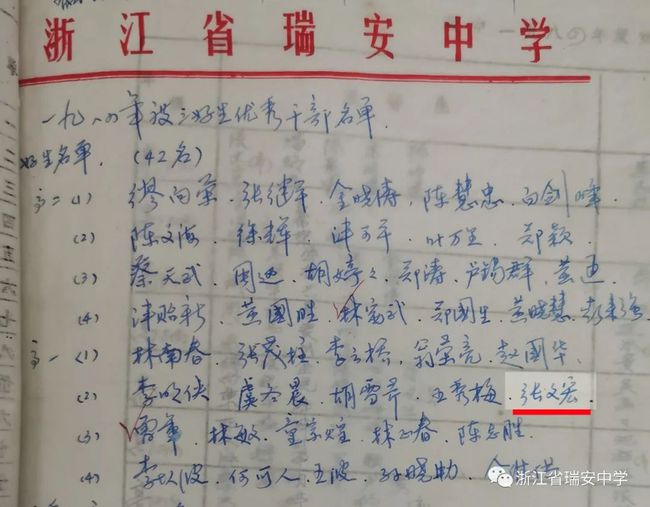 浙江省瑞安中学
一九八四年校三好生优秀干部名单
好生名单. (42名)
高二(1) 缪向荣. 张继军. 金晓涛, 陈慧忠. 白剑峰
(2) 陈文海 徐辉. 叶万里. 郑颖
(3) 蔡天武. 周迅. 胡婷々. 郑涛. 卢锡群. 黄迅.
(4) 黄国胜. 林宏武. 郑国生. 黄晓慧.
高一(1) 林南春. 张茂柱. 李云桥. 翁荣亮. 赵国华.
(2) 李明侠 虞冬晨. 胡雪芹. 王秀梅. 张文宏.
(3) 曹军 林敏. 童宗煌. 林正春. 陈志胜.
(4) 李跃波. 何可人. 王波. 孙晓勋.
浙江省瑞安中学